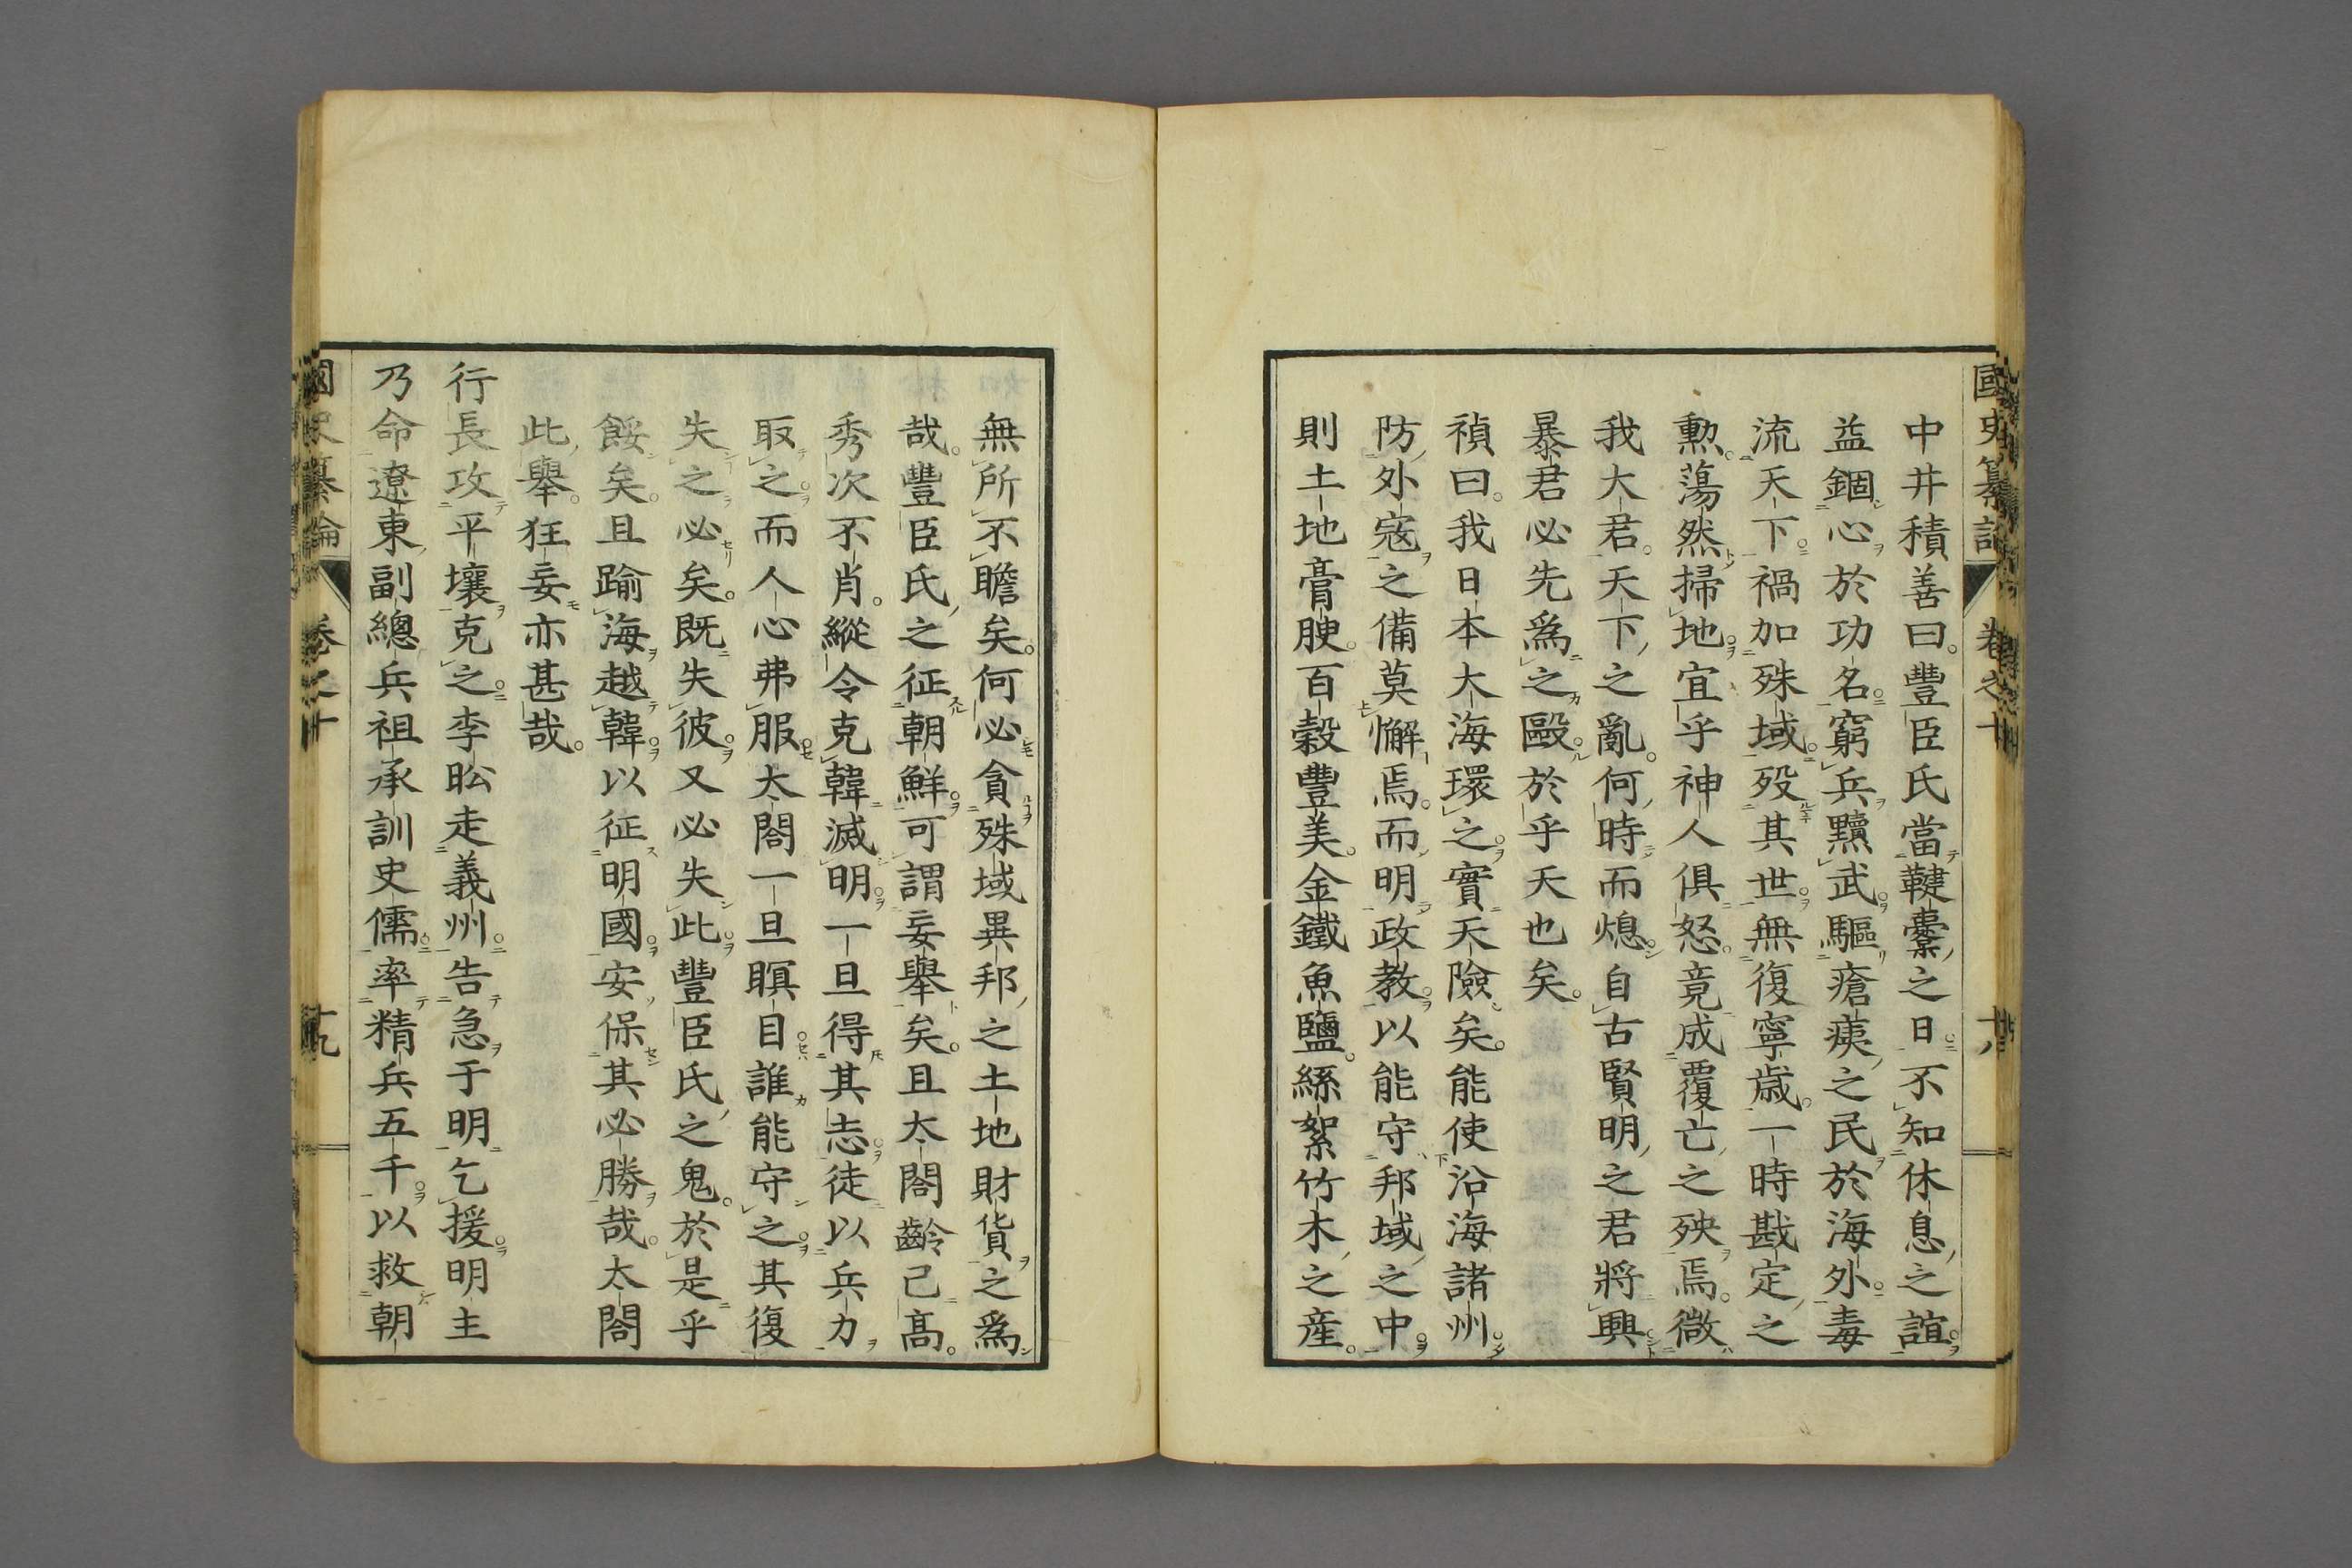 國史纂論 卷之十 十八
中井積善曰。豐臣氏當鞬櫜之日。不知休息之誼。
益錮心於功名。窮兵黷武。驅瘡痍之民於海外。毒
流天下。禍加殊域。歿其世無復寧歲。一時戡定之
勲。蕩然掃地。宜乎神人俱怒。竟成覆亡之殃焉。微
我大君。天下之亂。何時而熄。自古賢明之君將興
暴君必先爲之毆。於乎天也矣。
禎曰。我日本大海環之。實天險矣。能使沿海諸州
防外寇之備莫懈焉。而明政教。以能守邦域之中。
則土地膏腴。百穀豐美。金鐵魚鹽。絲絮竹木之産。
無所不贍矣。何必貪殊域異邦之土地財貨之爲
哉。豐臣氏之征朝鮮。可謂妄舉矣。且太閤齡已高。
秀次不肖。縱令克韓滅明。一旦得其志。徒以兵力
取之。而人心弗服。太閤一旦瞑目。誰能守之。其復
失之必矣。既失彼。又必失此。豐臣氏之鬼。於是乎
餒矣。且踰海越韓。以征明國。安保其必勝哉。太閤
此舉。狂妄亦甚哉。
行長攻平壤克之。李昖走義州。告急于明乞援。明主
乃命遼東副總兵祖承訓史儒。率精兵五千。以救朝
國史纂論 卷之十 十九